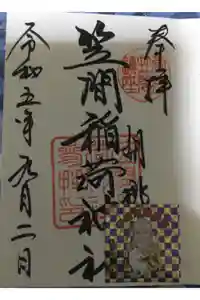 奉拝
笠間稲荷神社
令和五年九月二日